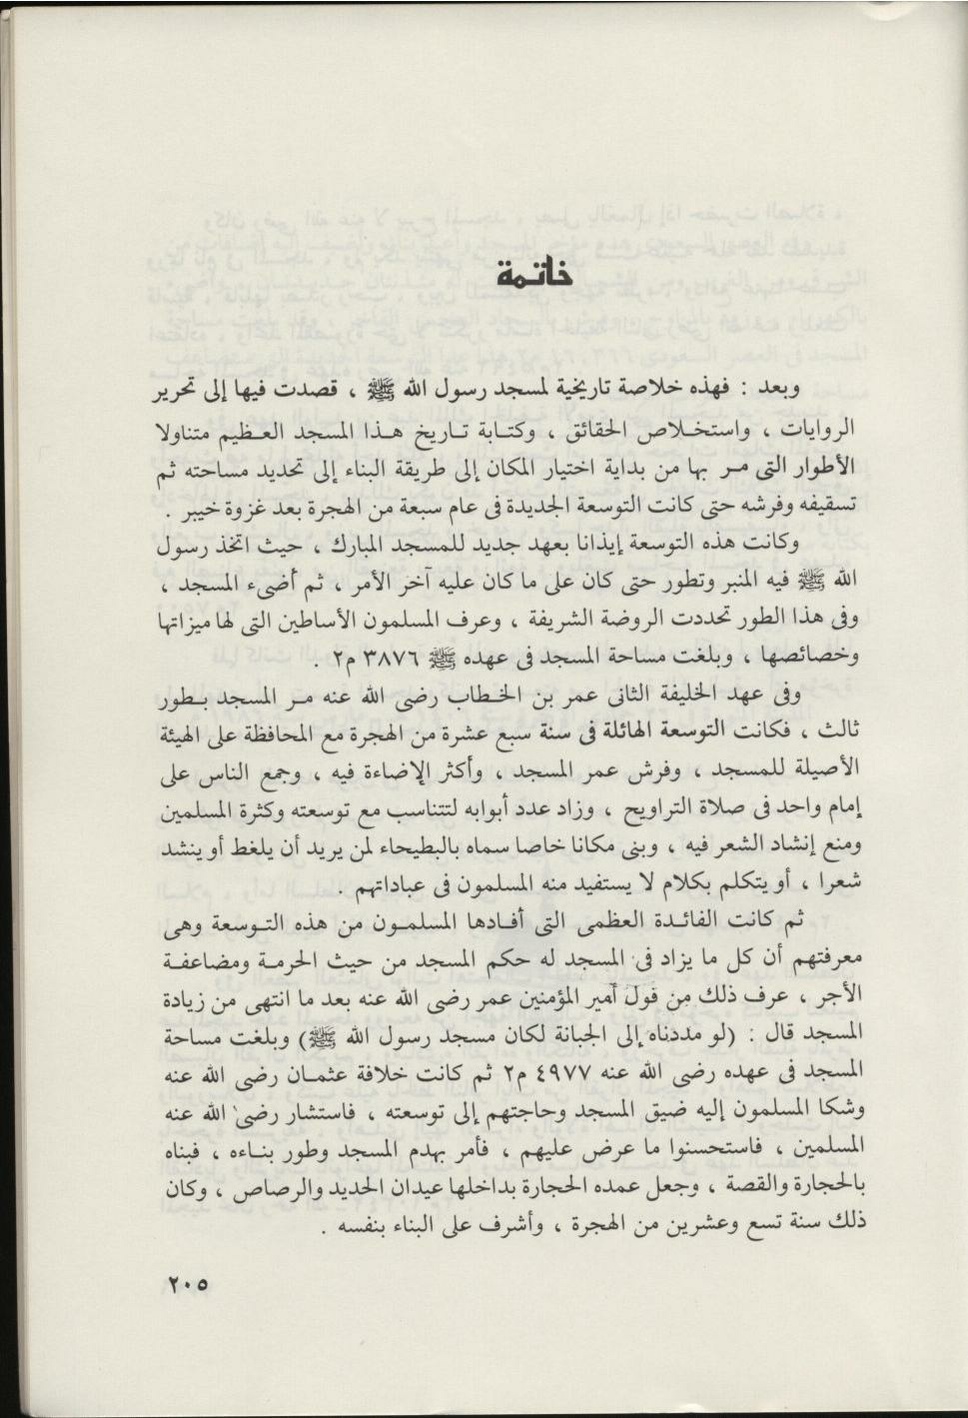 خاتمة
وبعد : فهذه خلاصة تاريخية لمسجد رسول الله ﷺ ، قصدت فيها إلى تحرير
الروايات ، واستخلاص الحقائق ، وكتابة تاريخ هذا المسجد العظيم متناولا
الأطوار التى مر بها من بداية اختيار المكان إلى طريقة البناء إلى تحديد مساحته ثم
تسقيفه وفرشه حتى كانت التوسعة الجديدة فى عام سبعة من الهجرة بعد غزوة خيبر .
وكانت هذه التوسعة إيذانا بعهد جديد للمسجد المبارك ، حيث اتخذ رسول
الله ﷺ فيه المنبر وتطور حتى كان على ما كان عليه آخر الأمر ، ثم أضىء المسجد ،
وفى هذا الطور تحددت الروضة الشريفة ، وعرف المسلمون الأساطين التى لها ميزاتها
وخصائصها ، وبلغت مساحة المسجد فى عهده ﷺ ٣٨٧٦ م٢ .
وفى عهد الخليفة الثانى عمر بن الخطاب رضى الله عنه مر المسجد بطور
ثالث ، فكانت التوسعة الهائلة فى سنة سبع عشرة من الهجرة مع المحافظة على الهيئة
الأصيلة للمسجد ، وفرش عمر المسجد ، وأكثر الإضاءة فيه ، وجمع الناس على
إمام واحد فى صلاة التراويح ، وزاد عدد أبوابه لتتناسب مع توسعته وكثرة المسلمين
ومنع إنشاد الشعر فيه ، وبنى مكانا خاصا سماه بالبطيحاء لمن يريد أن يلغط أو ينشد
شعرا ، أو يتكلم بكلام لا يستفيد منه المسلمون فى عباداتهم .
ثم كانت الفائدة العظمى التى أفادها المسلمون من هذه التوسعة وهى
معرفتهم أن كل ما يزاد فى المسجد له حكم المسجد من حيث الحرمة ومضاعفة
الأجر ، عرف ذلك من قول أمير المؤمنين عمر رضى الله عنه بعد ما انتهى من زيادة
المسجد قال : (لو مددناه إلى الجبانة لكان مسجد رسول الله ﷺ) وبلغت مساحة
المسجد فى عهده رضى الله عنه ٤٩٧٧ م٢ ثم كانت خلافة عثمان رضى الله عنه
وشكا المسلمون إليه ضيق المسجد وحاجتهم إلى توسعته ، فاستشار رضى الله عنه
المسلمين ، فاستحسنوا ما عرض عليهم ، فأمر بهدم المسجد وطور بناءه ، فبناه
بالحجارة والقصة ، وجعل عمده الحجارة بداخلها عيدان الحديد والرصاص ، وكان
ذلك سنة تسع وعشرين من الهجرة ، وأشرف على البناء بنفسه .
٢٠٥